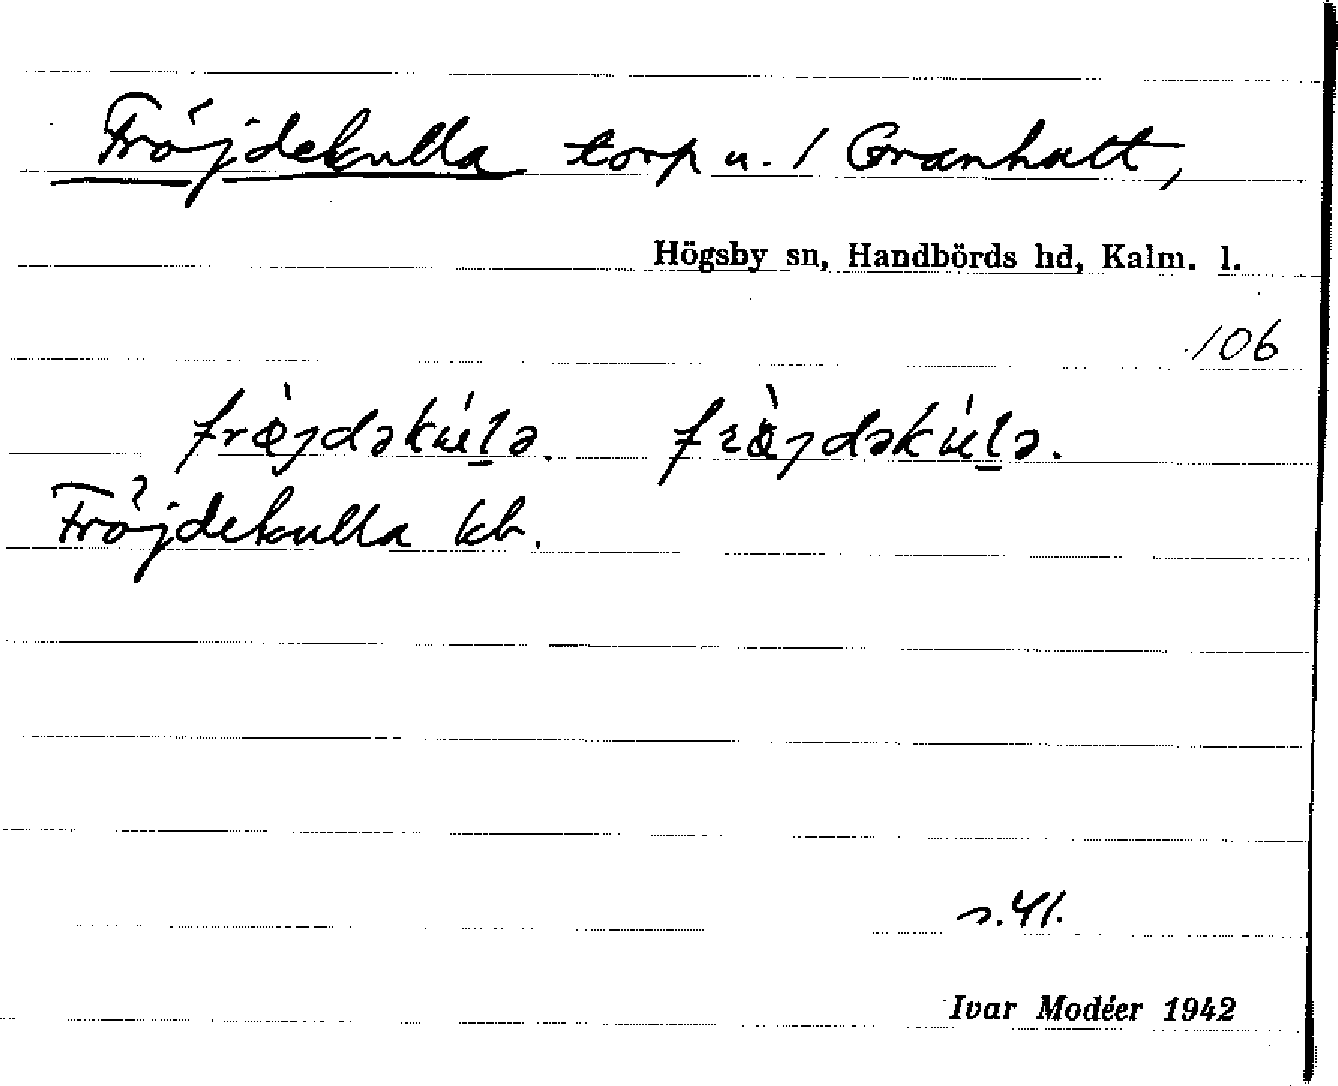 Fröjdekulla torp u. 1 Granhult,
Högsby sn, Handbörds hd, Kalm. l.
106
frœ̀jdəkúlə. frœ̀jdəkúlə.
Fröjdekulla kb.
s. 41.
Ivar Modéer 1942